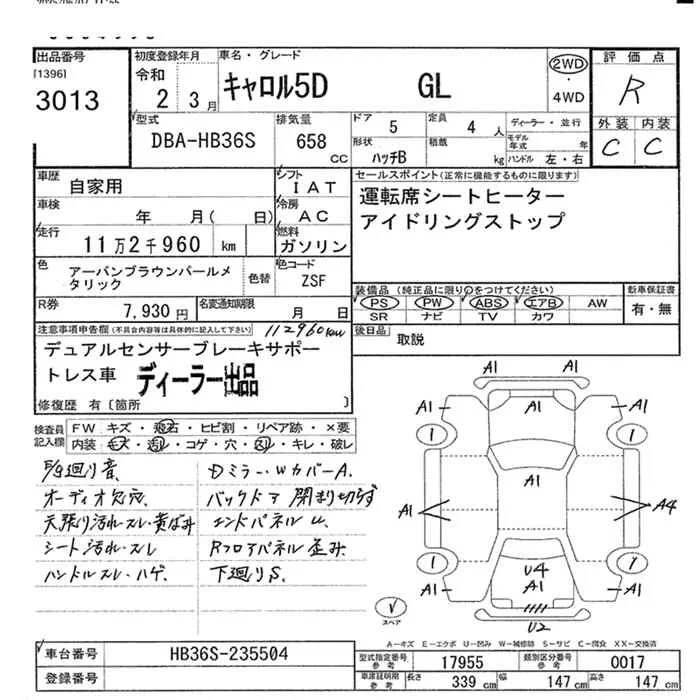 出品番号
[1396]
3013
初度登録年月
令和
2 3月
車名・グレード
キャロル5D GL
2WD
・
4WD
評価点
R
外装 内装
C C
型式
DBA-HB36S
排気量
658
CC
ドア 5
定員 4人
形状 ハッチB
積載 kg
ディーラー・並行
モデル年式 年
ハンドル 左・右
車歴
自家用
シフト
IAT
車検
年 月( 日)
冷房
AC
走行
11万2千960 km
燃料
ガソリン
色
アーバンブラウンパールメタリック
色替
色コード
ZSF
R券
7,930円
名変通知期限
月 日
セールスポイント(正常に機能するものに限ります)
運転席シートヒーター
アイドリングストップ
装備品(純正品に限り○をつけてください)
PS PW ABS エアB AW
SR ナビ TV カワ
新車保証書
有・無
後日品
取説
注意事項申告欄(不具合内容等は具体的に記入して下さい)
112960km
デュアルセンサーブレーキサポー
トレス車 ディーラー出品
修復歴 有〔箇所 〕
検査員記入欄
FW キズ・飛石・ヒビ割・リペア跡・×要
内装 キズ・汚れ・コゲ・穴・スレ・キレ・破レ
廻り音.
オーディオ欠穴
天張り汚れ・スレ・黄ばみ
シート汚れ・スレ
ハンドルスレ・ハゲ.
Dミラー・WカバーA.
バックドア 閉まり切らず
エンドパネルU
Rフロアパネル歪み.
下廻りS.
A1
A1 A1 A1
1 1
A1
A1 A4
1
A1 U4 A1
A1
U2
スペア
A=キズ E=エクボ U=凹み W=補修跡 S=サビ C=腐食 XX=交換済
車台番号
HB36S-235504
登録番号
型式指定番号 参考
17955
類別区分番号 参考
0017
車庫証明用 参考
長さ 339cm
幅 147cm
高さ 147cm